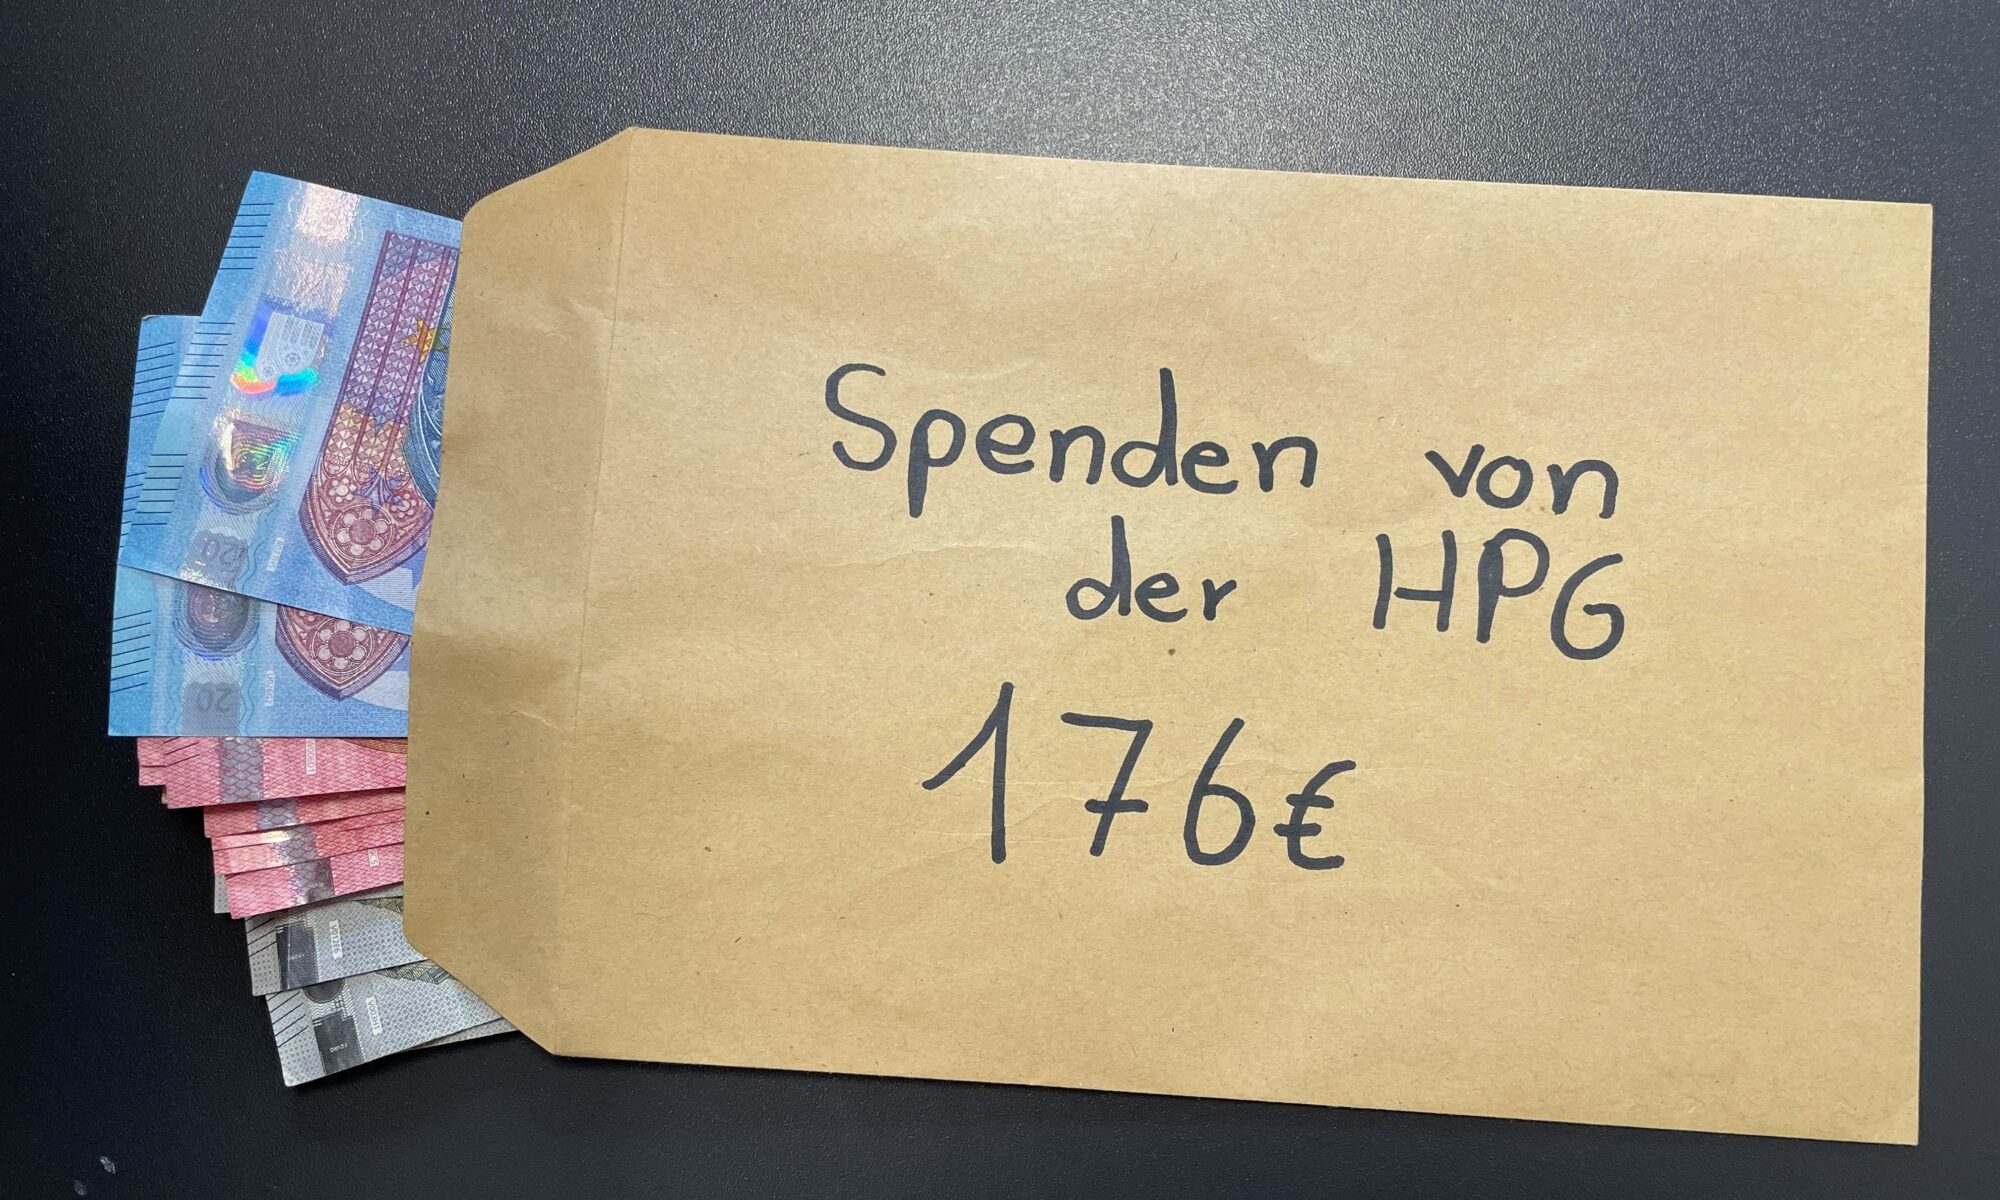 Spenden von
der HPG
176€
20
20